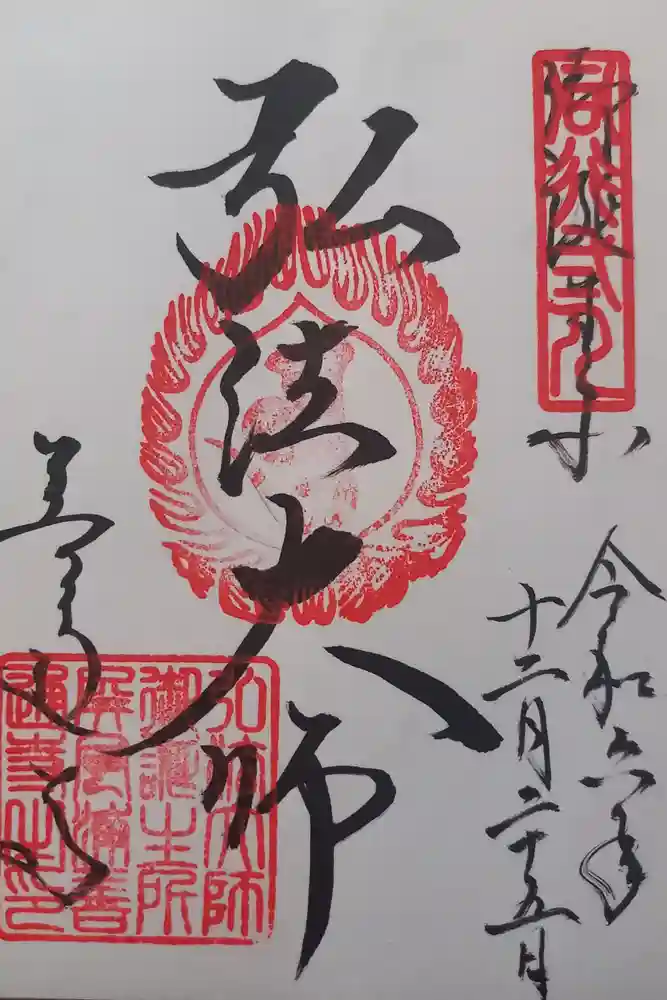 弘法大師
令和六年
十二月二十五日
善通寺
弘法大師
御誕生院
屏風浦善
通寺之印